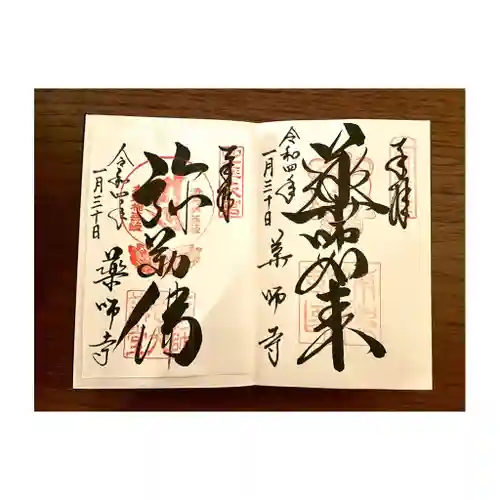 奉拝
薬師如来
令和四年
一月三十日
薬師寺
奉拝
弥勒佛
令和四年
一月三十日
薬師寺